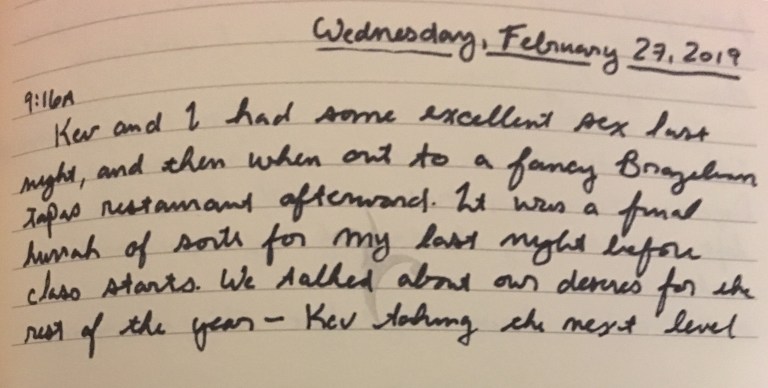 Wednesday, February 27, 2019
9:16A
Kev and I had some excellent sex last
night, and then when out to a fancy Brazilian
tapas restaurant afterward. It was a final
hurrah of sorts for my last night before
class starts. We talked about our desires for the
rest of the year - Kev taking the next level